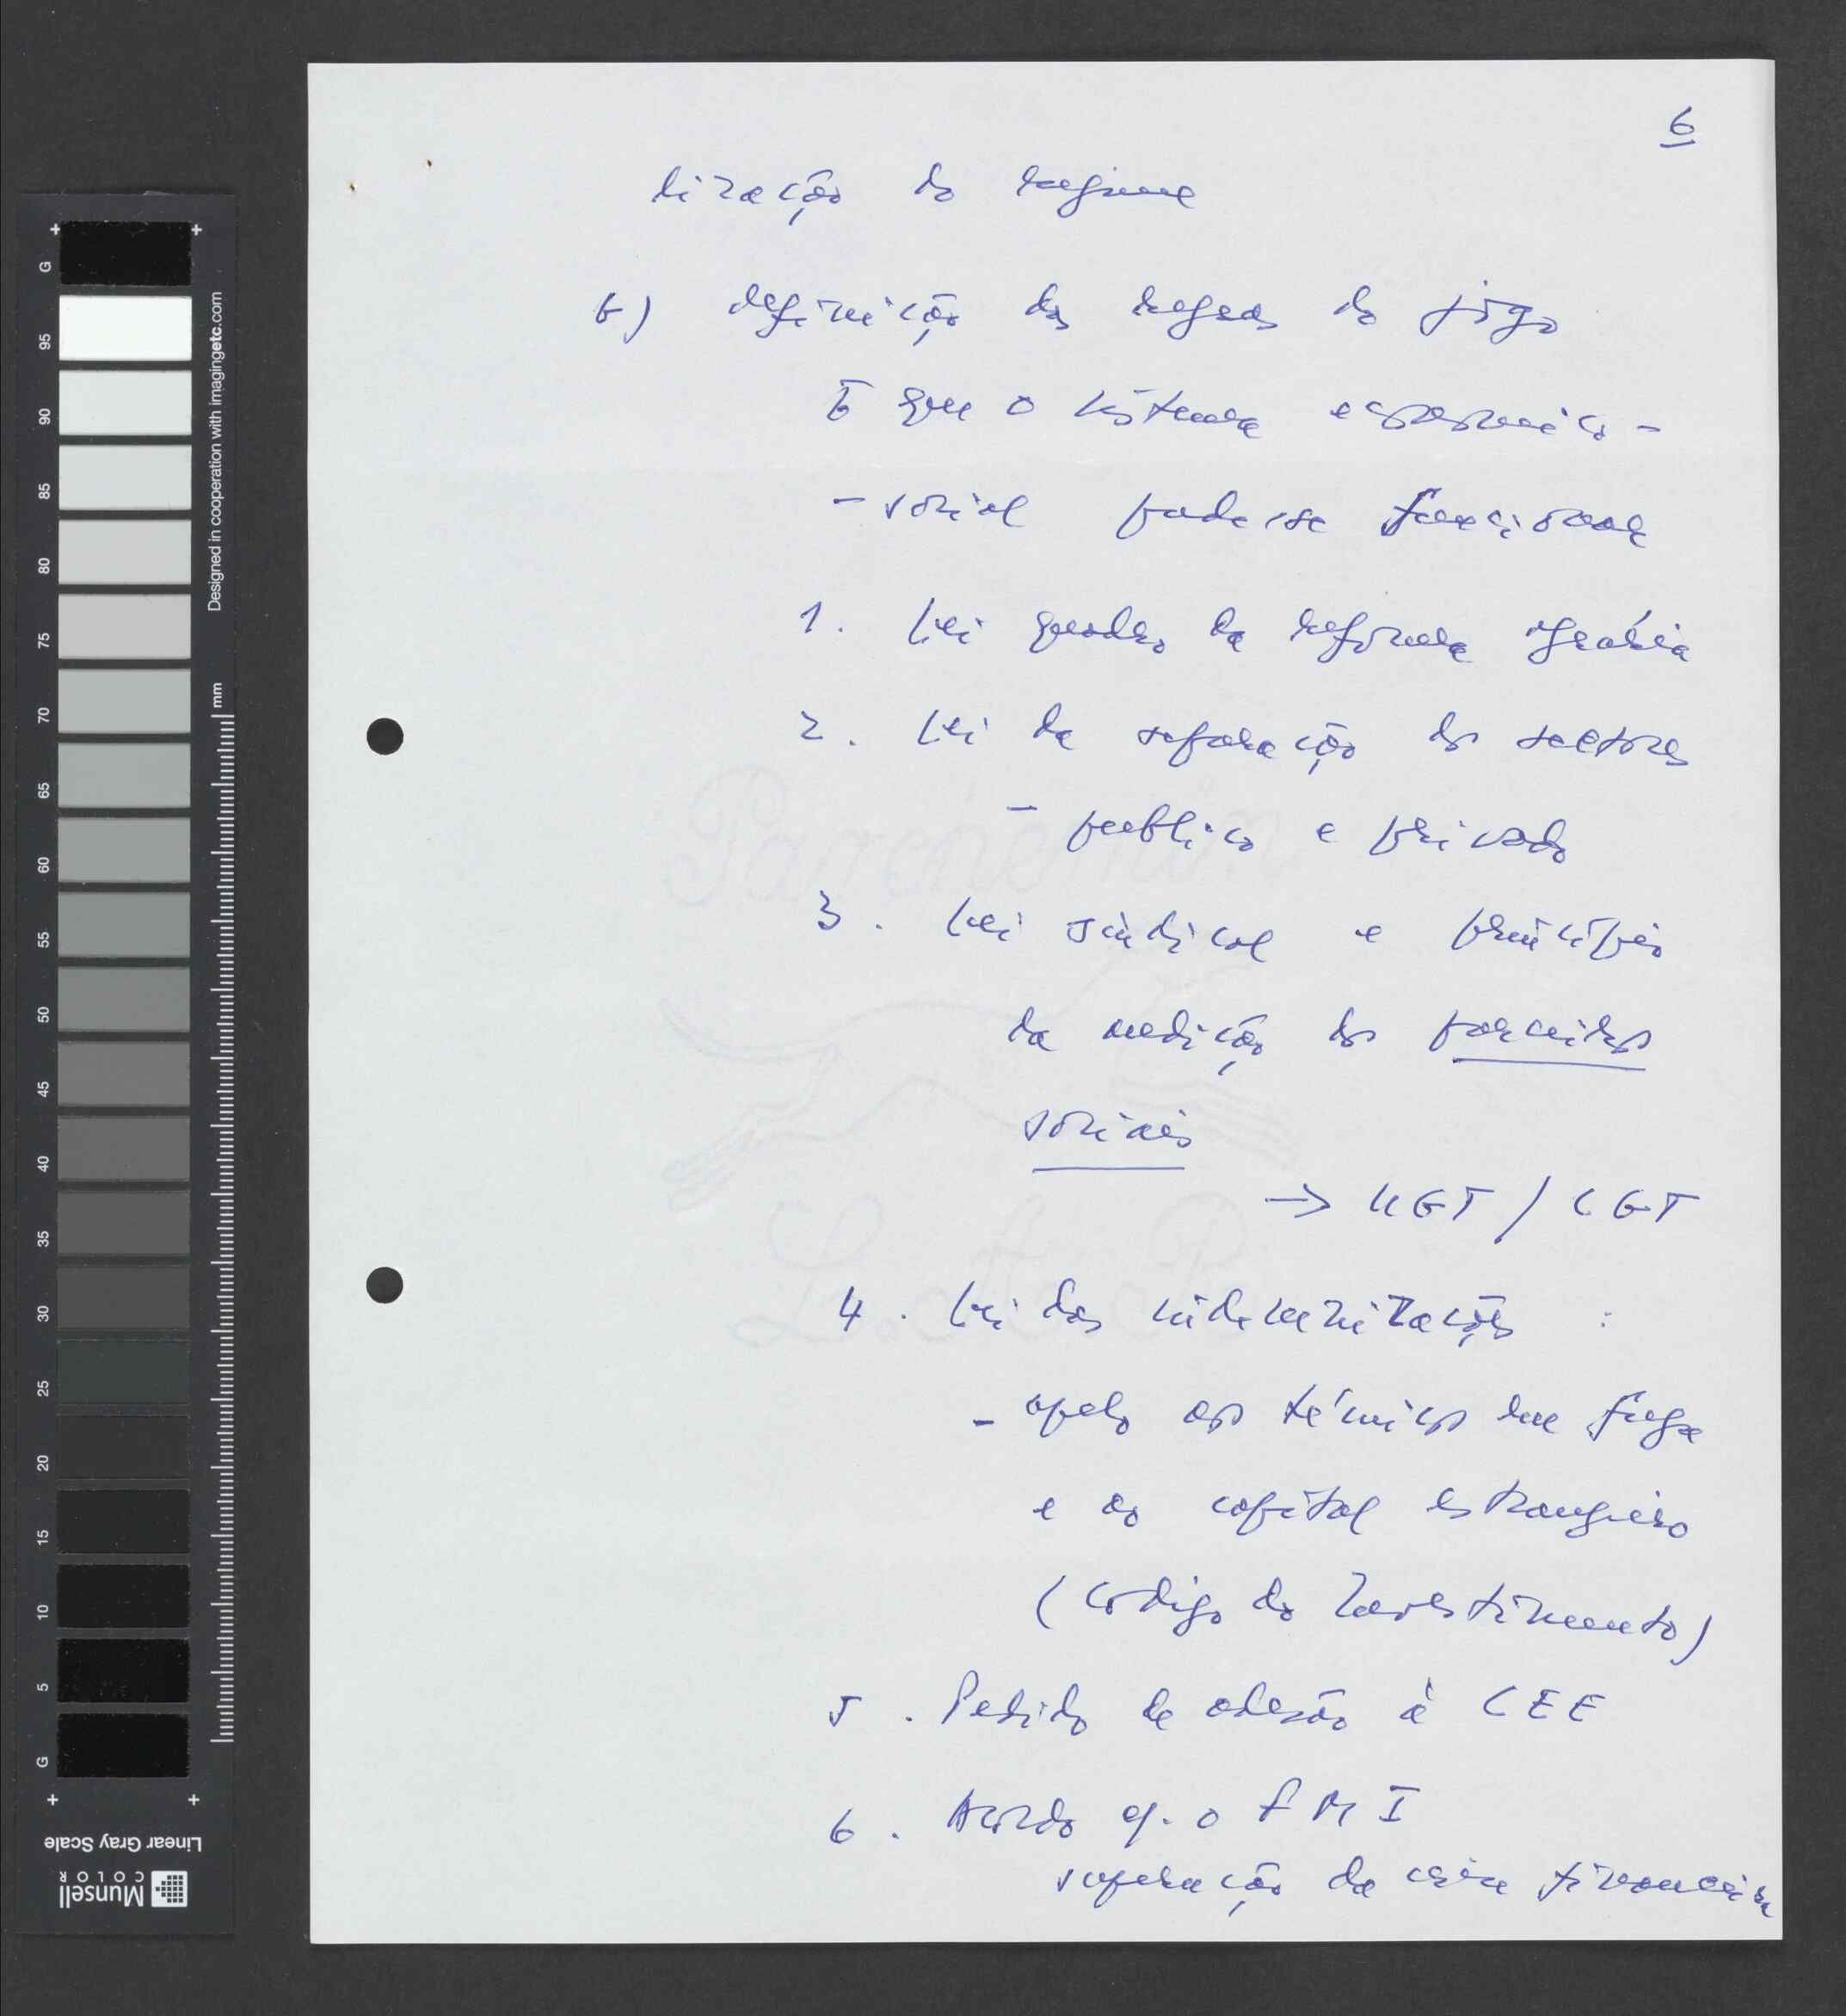 6
lização do regime
b) definição das regras do jogo
E que o sistema económico-
- social pudesse funcionar
1. Lei quadro da reforma agrária
2. Lei da separação dos sectores
- publico e privado
3. Lei sindical e princípio
da medição dos parceiros
sociais
→ UGT / CGT
4. Lei das indemnizações :
- apelo aos técnicos em fuga
e ao capital estrangeiro
(codigo do Investimento)
5. Pedido de adesão à CEE
6. Acordo c/. o FMI
superação da crise financeira
Parenémin
L. A. P.
G
95
90
85
80
75
70
65
60
55
50
45
40
35
30
25
20
15
10
5
G
Designed in cooperation with imagingetc.com
mm
Linear Gray Scale
Munsell
COLOR